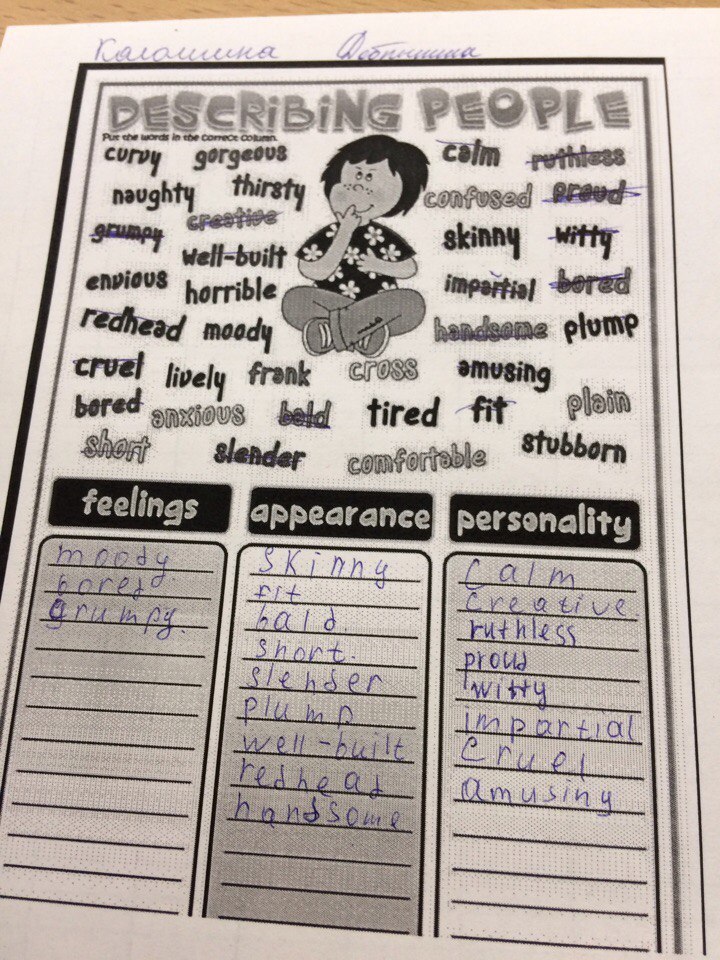 Калошина
DESCRIBING PEOPLE
Put the words in the correct column.
curvy gorgeous calm ruthless
naughty thirsty confused proud
grumpy creative skinny witty
well-built
envious horrible impartial bored
redhead moody handsome plump
cruel lively frank cross amusing
bored anxious bald tired fit plain
short slender comfortable stubborn
feelings appearance personality
moody. skinny calm
bored fit creative
grumpy. bald. ruthless
short. proud
slender witty
plump impartial
well-built cruel
redhead amusing
handsome